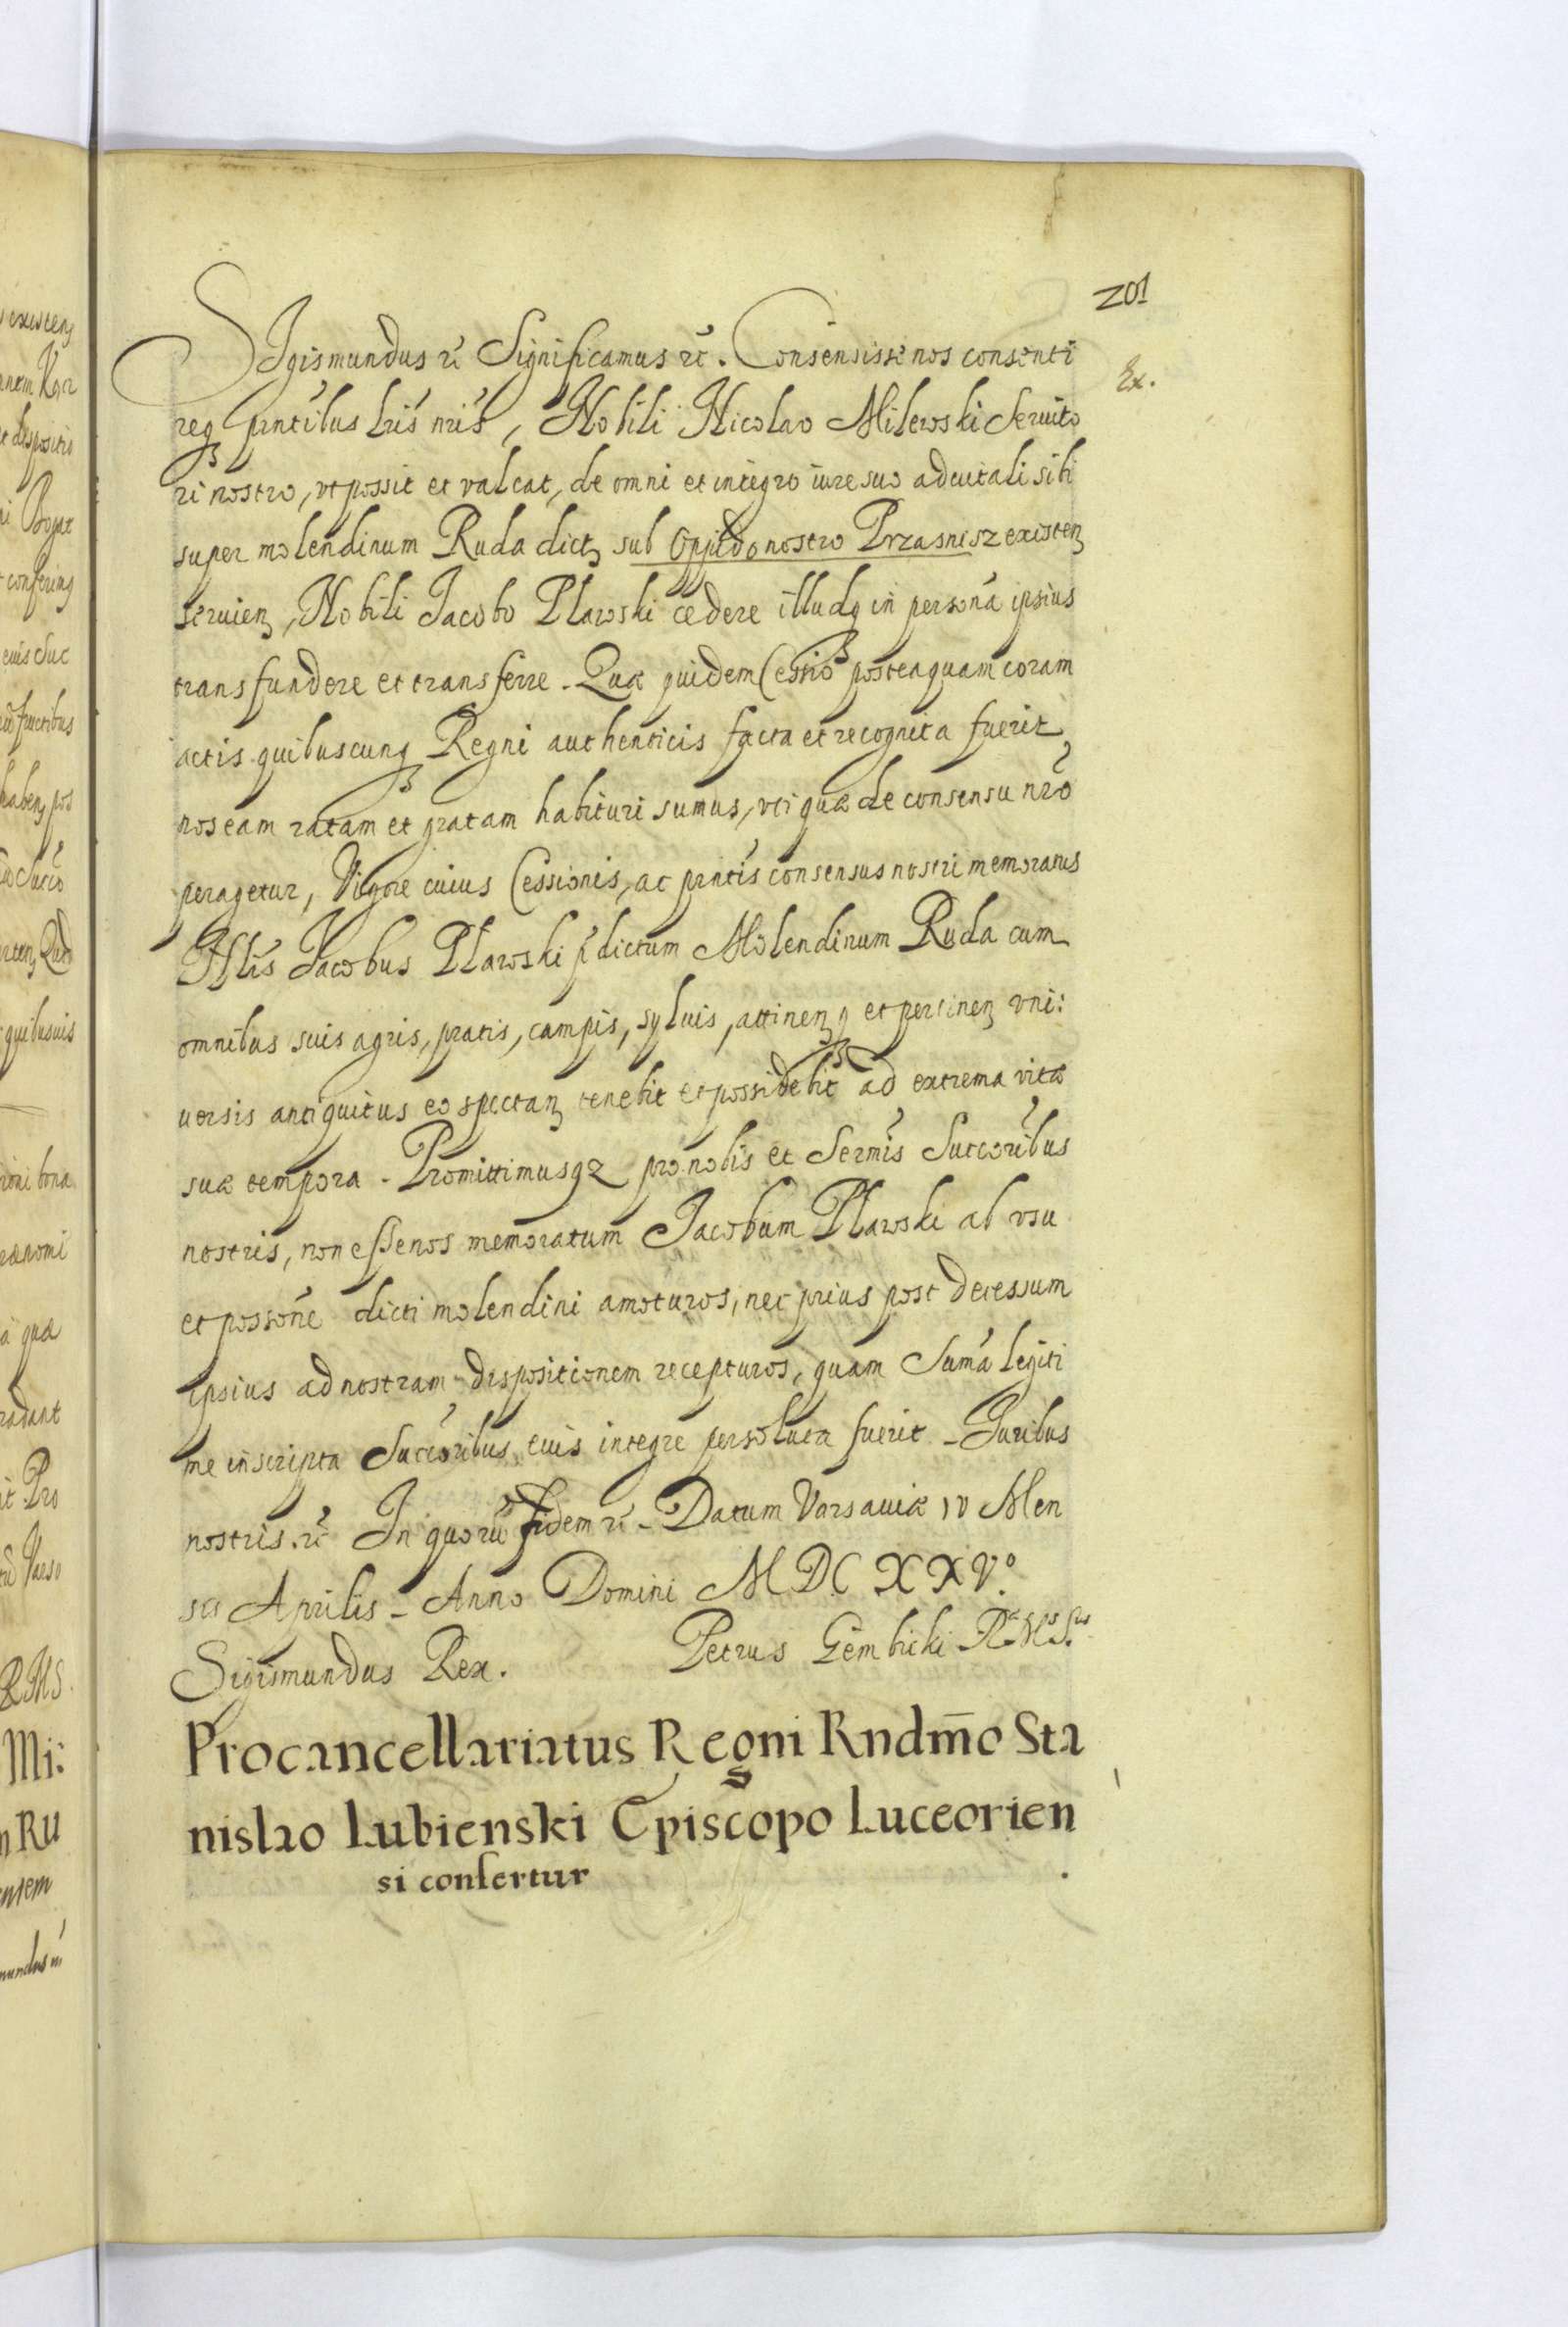 201
Ex.
SIgismundus rc̃ Significamus rc̃. Consensisse nos consenti
reqꝫ pntibus lr̃is nr̃is, Nobili Nicolao Milewski Seruito
ri nostro, vt possit et valeat, de omni et integro iure suo aduitali sibi
super molendinum Ruda dictꝫ sub Oppido nostro Przasnisz existenꝫ
seruienꝫ, Nobili Jacobo Plawski cedere illudqꝫ in personã ipsius
transfundere et transferre. Quæ quidem Cessio posteaquam coram
actis quibuscunqꝫ Regni authenticis facta et recognita fuerit,
nos eam ratam et gratam habituri sumus, vti quæ de consensu nr̃o
peragetur, Vigore cuius Cessionis, ac pntis consensus nostri memoratus
Nlis Jacobus Plawski p̃dictum Molendinum Ruda cum
omnibus suis agris, pratis, campis, syluis, attinenꝫqꝫ et pertinenꝫ vni:
uersis antiquitus eo spectanꝫ tenebit et possidebit ad extrema vitæ
suæ tempora. Promittimusqꝫ pro nobis et Serm̃is Succoribus
nostris, non esse nos memoratum Jacobum Plawski ab vsu
et possoñe dicti molendini amoturos, nec prius post decessum
ipsius ad nostram dispositionem recepturos, quam Sum̃a legiti
me inscripta Succoribus eius integre persoluta fuerit. Juribus
nostris rc̃ In quorũ fidem rc̃. Datum Varsauiæ IV Men
sis Aprilis. Anno Domini MDCXXV.o
Sigismundus Rex. Petrus Gembicki R. M. S.
Procancellariatus Regni Rndm̄o Sta
nislao Lubienski Episcopo Luceorien
si confertur